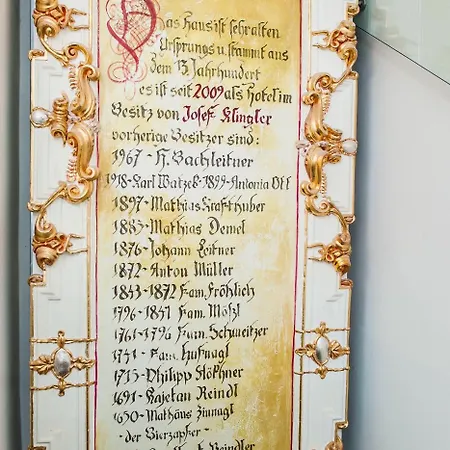 Das Haus ist sehr alten
Ursprungs u. stammt aus
dem 13. Jahrhundert
es ist seit 2009 als Hotel im
Besitz von Josef Klingler
vorherige Besitzer sind:
1967 - H. Bachleitner
1918 - Karl Watzek - 1899 - Antonia Ott
1897 - Mathias Krafthuber
1885 - Mathias Demel
1876 - Johann Leitner
1872 - Anton Müller
1843 - 1872 Fam. Fröhlich
1796 - 1841 Fam. Mößl
1761 - 1796 Fam. Schweitzer
1741 - Fam. Hufnagl
1715 - Philipp Stökhner
1691 - Kajetan Reindl
1650 - Mathäus Zinnagl
- der Bierzapfer -
Reindler